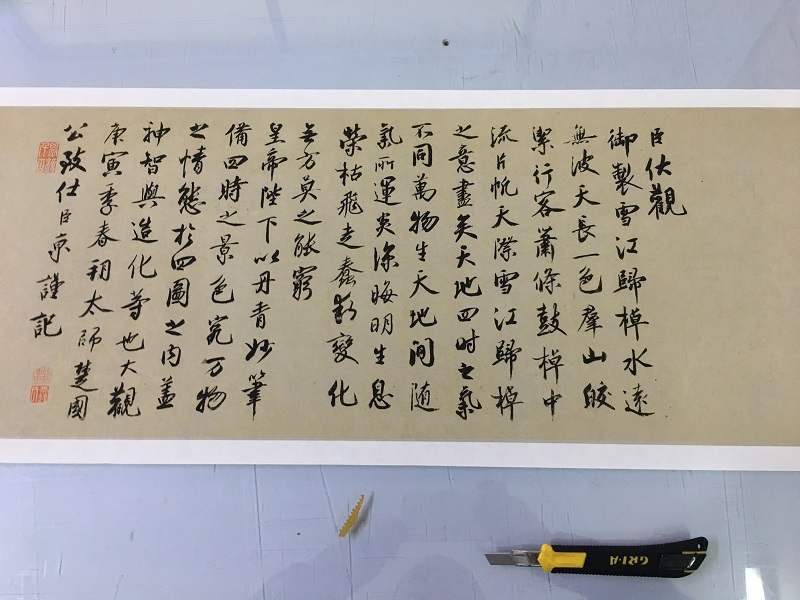 臣伏觀
御製雪江歸棹水遠
無波天長一色羣山皎
潔行客蕭條鼓棹中
流片帆天際雪江歸棹
之意盡矣天地四时之氣
不同萬物生天地間随
氣所運炎涼晦明生息
榮枯飛走蠢動變化
无方莫之能窮
皇帝陛下以丹青妙筆
備四時之景色究万物
之情態於四圖之内蓋
神智與造化等也大觀
庚寅季春朔太師楚國
公致仕臣京謹記
GRI-A